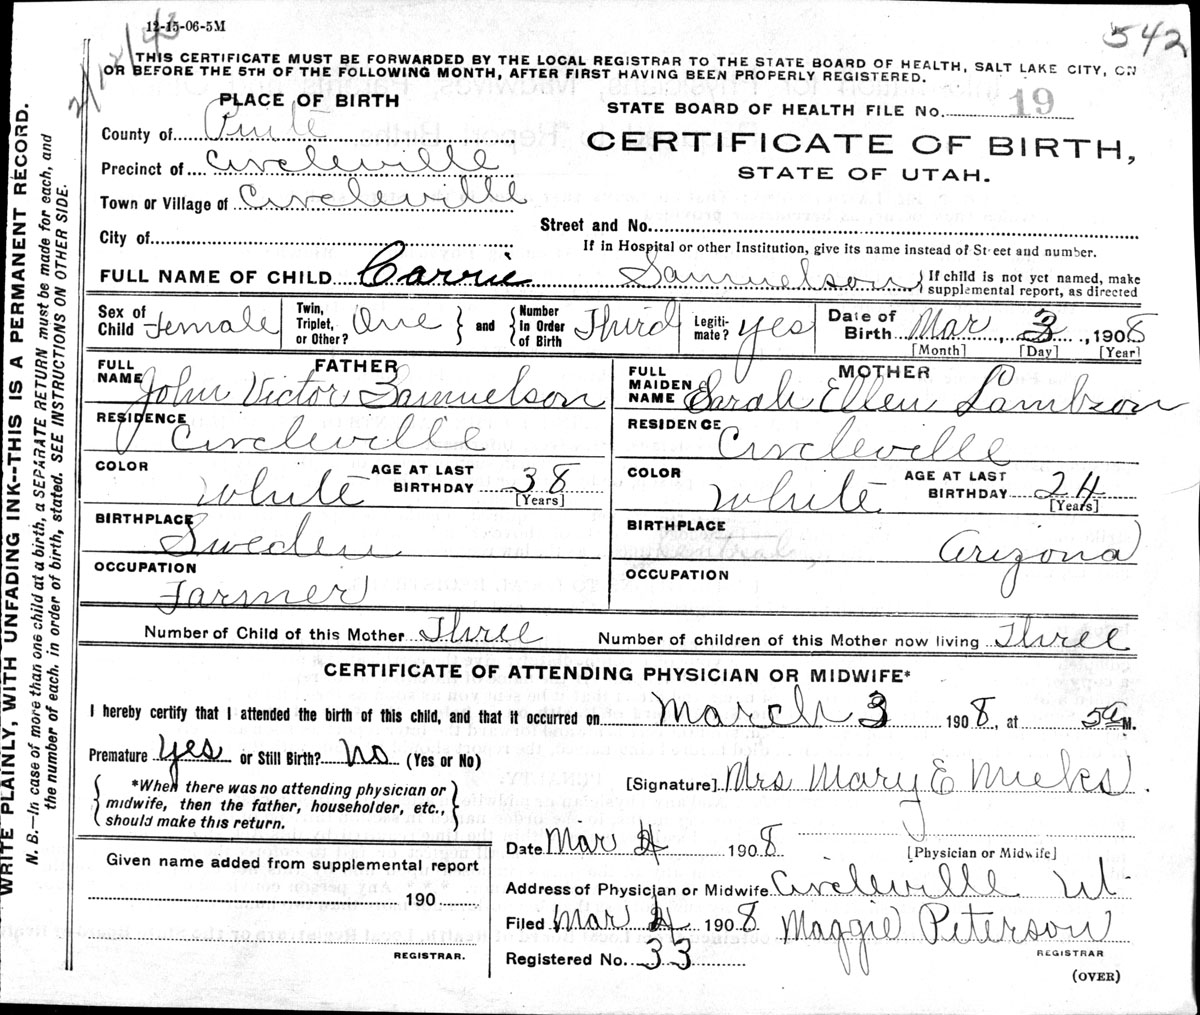 12-15-06-5M
542
2/12/43
THIS CERTIFICATE MUST BE FORWARDED BY THE LOCAL REGISTRAR TO THE STATE BOARD OF HEALTH, SALT LAKE CITY, ON
OR BEFORE THE 5TH OF THE FOLLOWING MONTH, AFTER FIRST HAVING BEEN PROPERLY REGISTERED.
PLACE OF BIRTH
County of Piute
Precinct of Circleville
Town or Village of Circleville
City of
STATE BOARD OF HEALTH FILE No. 19
CERTIFICATE OF BIRTH,
STATE OF UTAH.
Street and No.
If in Hospital or other Institution, give its name instead of Street and number.
FULL NAME OF CHILD Carrie Samuelson If child is not yet named, make
supplemental report, as directed
Sex of Child Female Twin, Triplet, or Other? One and Number in Order of Birth Third Legiti-mate? yes Date of Birth Mar 3, 1908
[Month] [Day] [Year]
FATHER
FULL NAME John Victor Samuelson
RESIDENCE Circleville
COLOR White AGE AT LAST BIRTHDAY 38
[Years]
BIRTHPLACE Sweden
OCCUPATION Farmer
MOTHER
FULL MAIDEN NAME Sarah Ellen Lambson
RESIDENCE Circleville
COLOR White AGE AT LAST BIRTHDAY 24
[Years]
BIRTHPLACE Arizona
OCCUPATION
Number of Child of this Mother Three Number of children of this Mother now living Three
CERTIFICATE OF ATTENDING PHYSICIAN OR MIDWIFE*
I hereby certify that I attended the birth of this child, and that it occurred on March 3 1908, at 5 a M.
Premature yes or Still Birth? No (Yes or No)
*When there was no attending physician or
midwife, then the father, householder, etc.,
should make this return.
[Signature] Mrs Mary E Mieks
Date Mar 4 1908
[Physician or Midwife]
Given name added from supplemental report
190
REGISTRAR.
Address of Physician or Midwife Circleville Ut
Filed Mar 4 1908 Maggie Peterson
REGISTRAR
Registered No. 33
(OVER)
WRITE PLAINLY, WITH UNFADING INK--THIS IS A PERMANENT RECORD.
N. B.—In case of more than one child at a birth, a SEPARATE RETURN must be made for each, and
the number of each, in order of birth, stated. SEE INSTRUCTIONS ON OTHER SIDE.